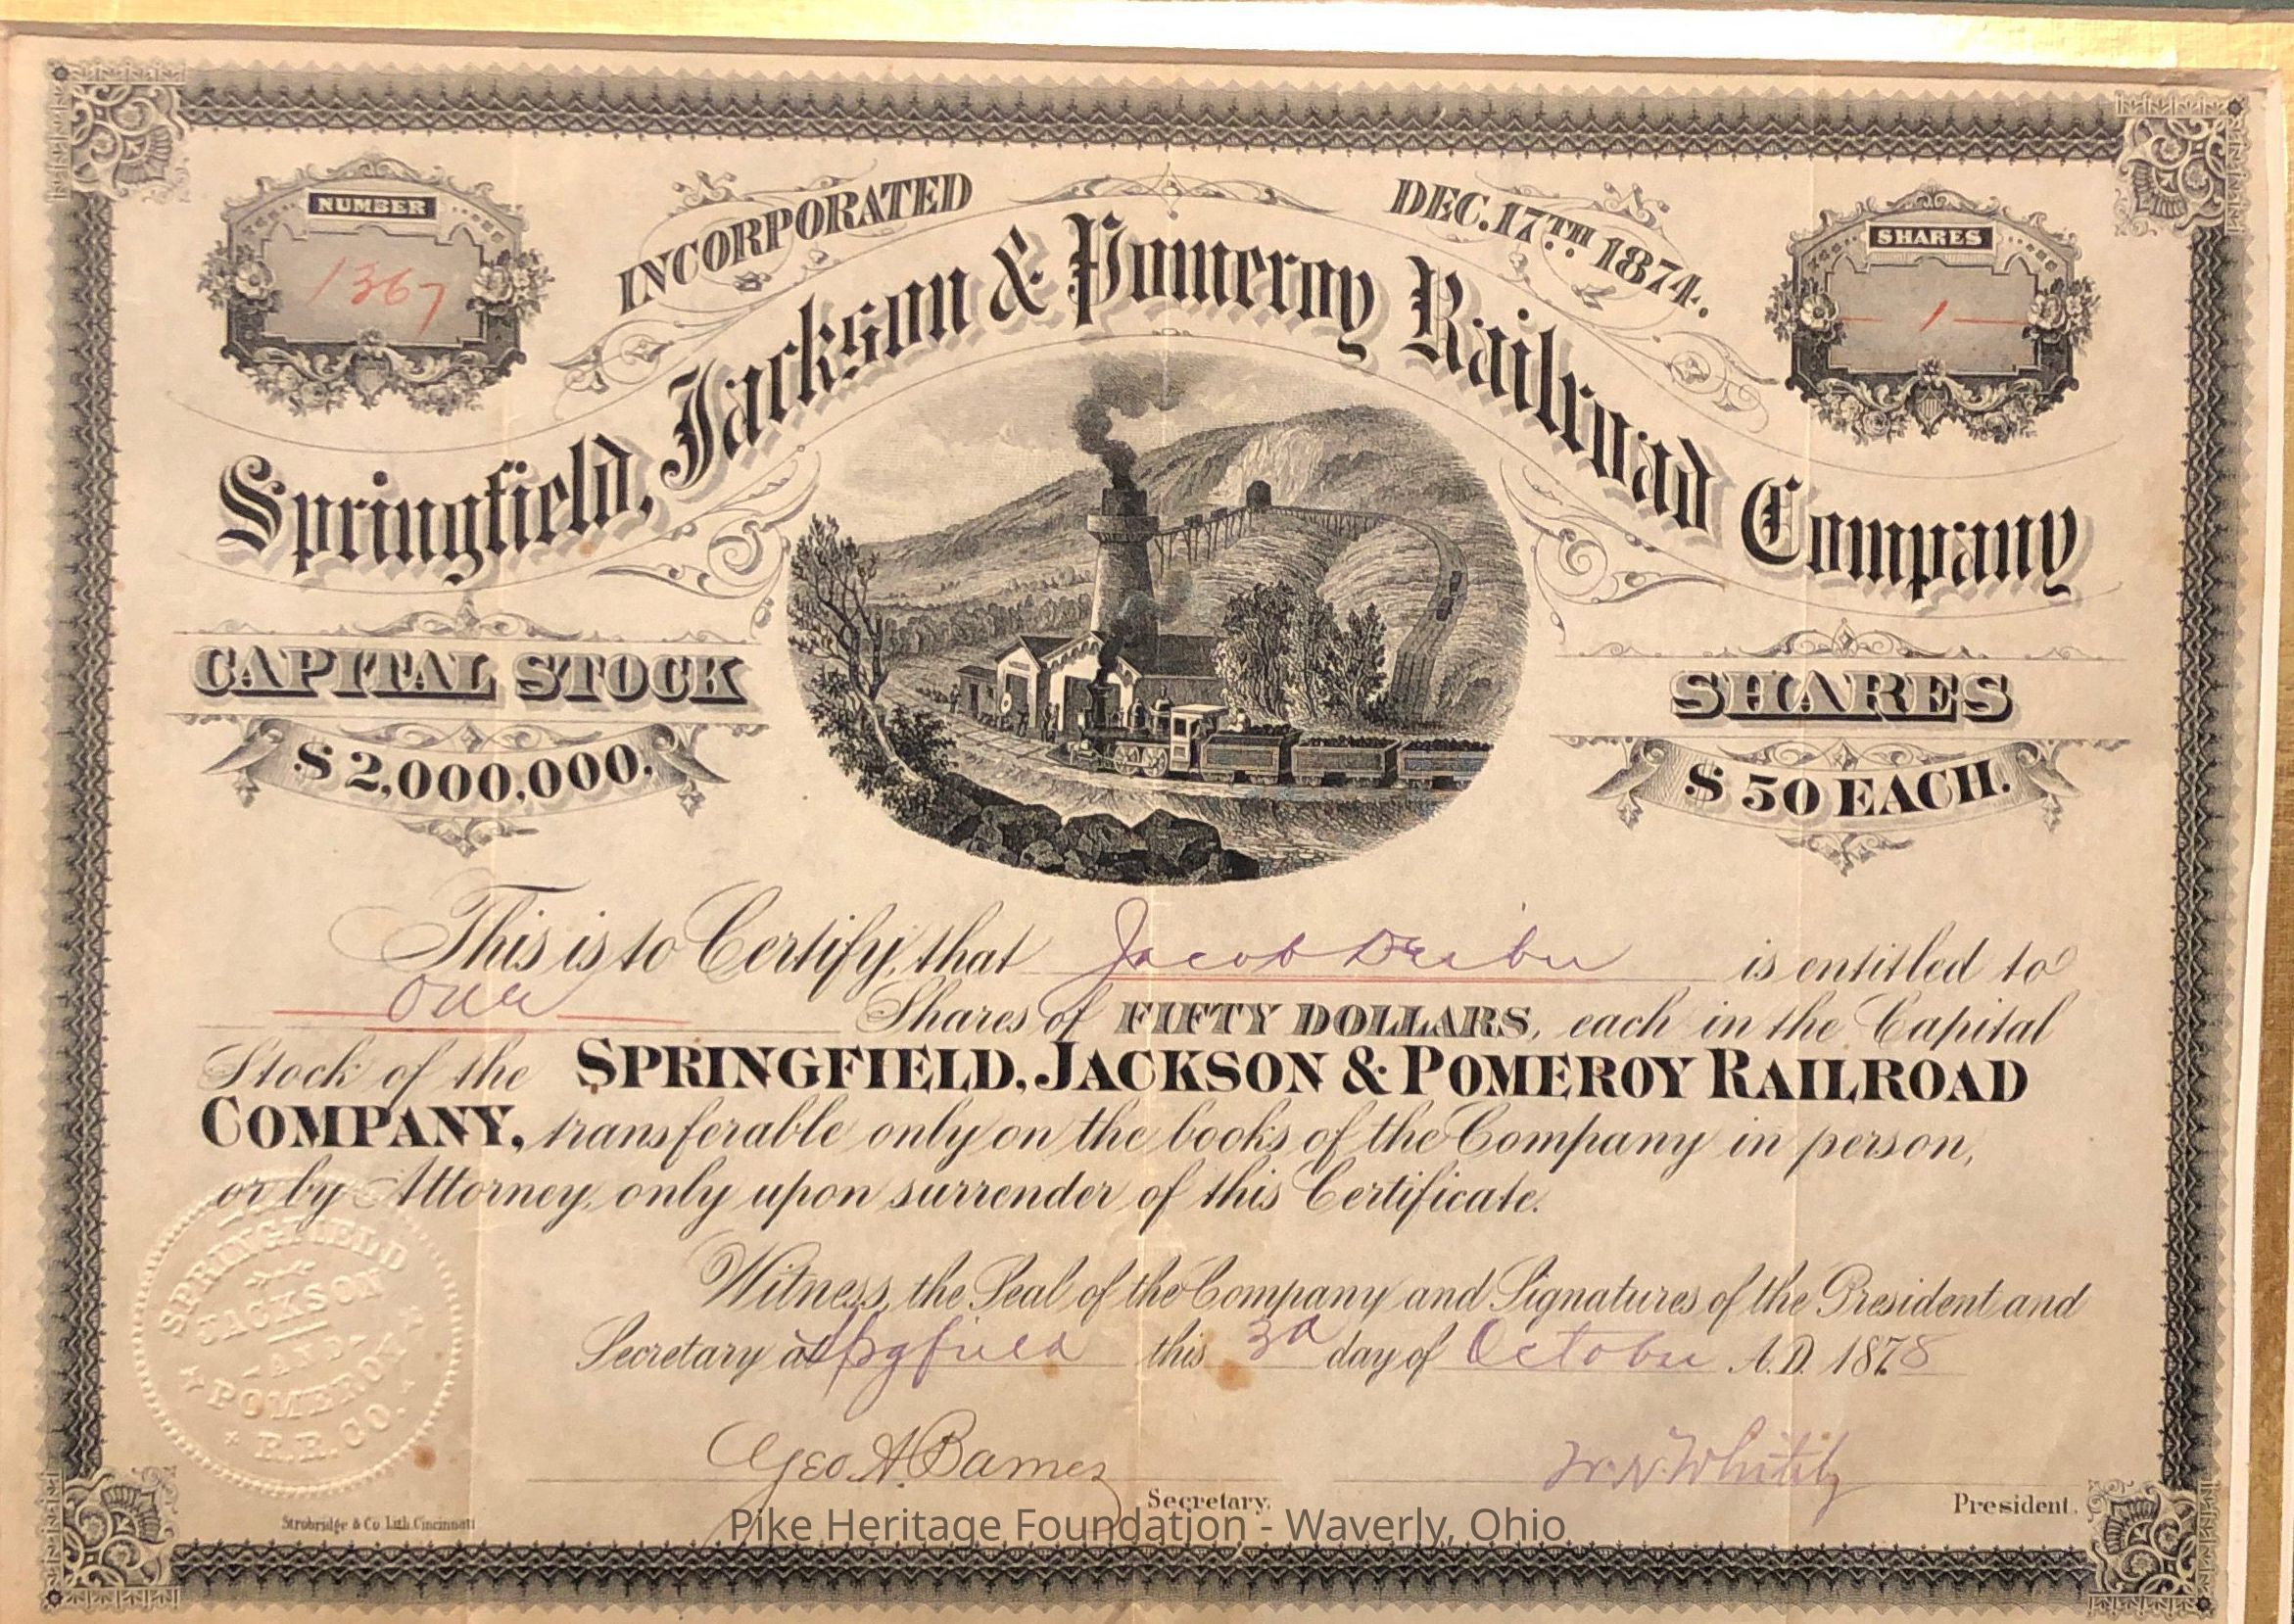 NUMBER
1367
INCORPORATED DEC. 17TH 1874.
SHARES
1
Springfield, Jackson & Pomeroy Railroad Company
CAPITAL STOCK
$2,000,000.
SHARES
$50 EACH.
This is to Certify, that Jacob is entitled to
One Shares of FIFTY DOLLARS, each in the Capital
Stock of the SPRINGFIELD, JACKSON & POMEROY RAILROAD
COMPANY, transferable only on the books of the Company in person,
or by Attorney, only upon surrender of this Certificate.
Witness, the Seal of the Company and Signatures of the President and
Secretary at Spgfield this 3d day of October A.D. 1878
SPRINGFIELD
JACKSON
AND
POMEROY
R.R. CO.
Geo. H. Barnes
Secretary.
President.
Strobridge & Co. Lith. Cincinnati
Pike Heritage Foundation - Waverly, Ohio